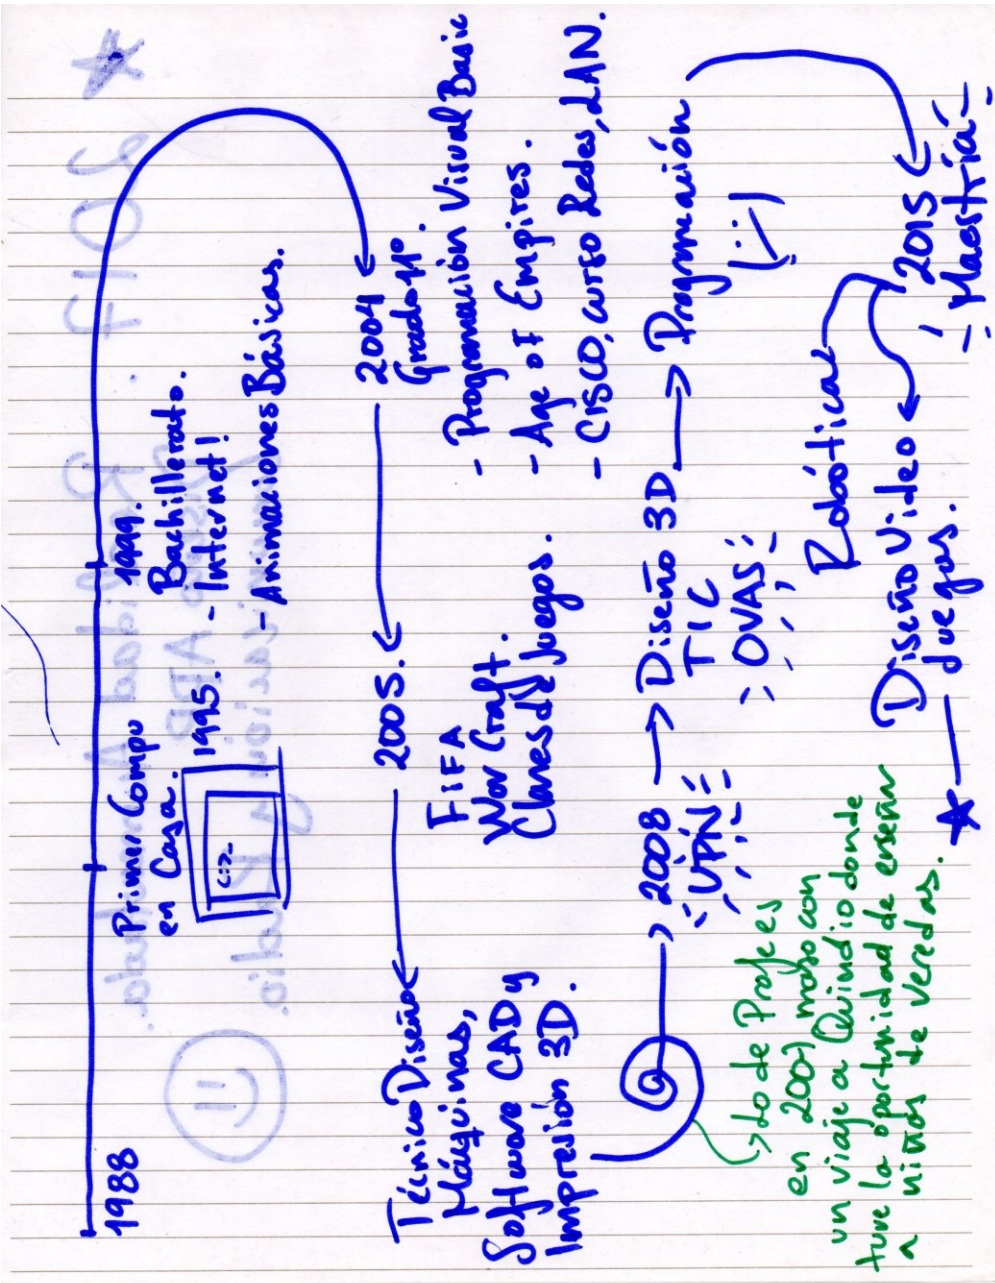 1988
Primer Compu
en Casa.
1995.
C:>_
1999.
Bachillerato.
- Internet!
- Animaciones Básicas.
2004
Grado 11°.
- Programación Visual Basic
- Age of Empires.
- CISCO, curso Redes, LAN.
2005.
FIFA
War Craft.
Clanes de juegos.
Técnico Diseño
Máquinas,
Software CAD y
Impresión 3D.
2008
UPN
Diseño 3D
TIC
OVAS
Programación
(:-)
2015
- Maestría -
Robótica
Diseño Video
juegos.
Lo de Profe es
en 2007 mazo con
un viaje a Quindio donde
tuve la oportunidad de enseñar
a niños de veredas.
2017
Realidad Aumentada.